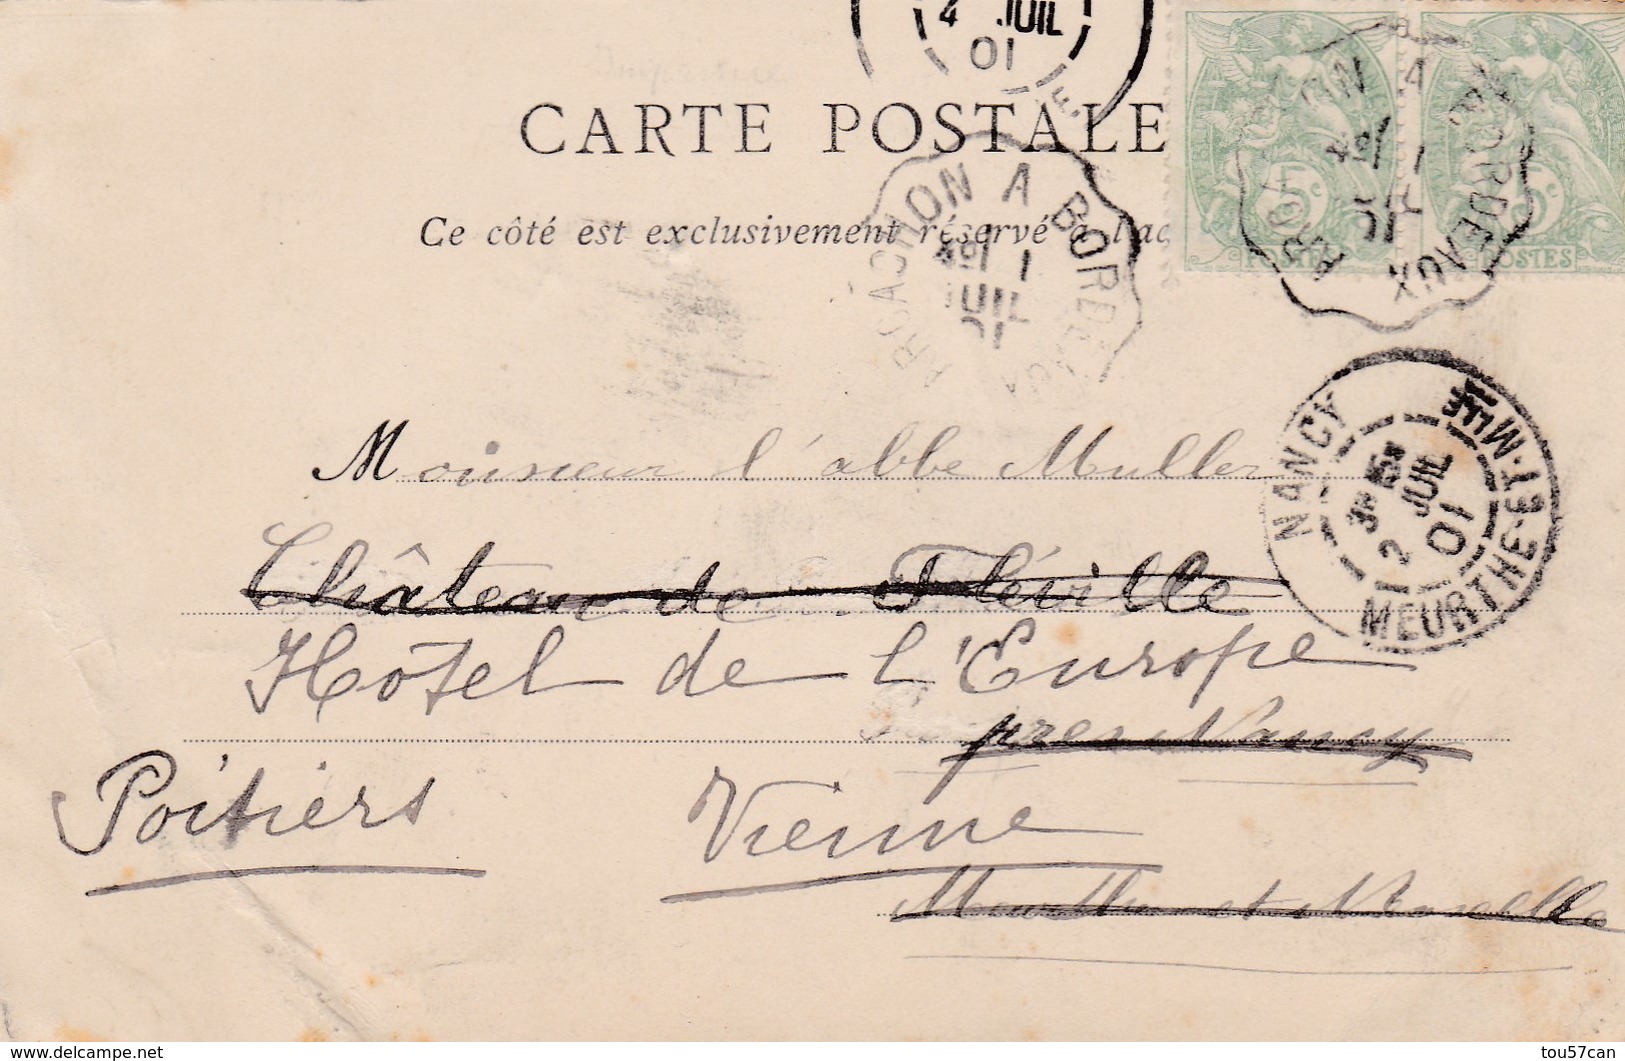 4 JUIL
01
CARTE POSTALE
Ce côté est exclusivement réservé à l'ad
ARCACHON A BORDEAUX
1
JUIL
01
ARCACHON A BORDEAUX
1
JUIL
01
5c
5c
POSTES
POSTES
NANCY
MEURTHE-ET-MLLE
2 JUIL
01
Monsieur l'abbe Muller
Château de Fléville
Hôtel de l'Europe
près Nancy
Poitiers Vienne
Meurthe et Moselle
delcampe.net
tou57can